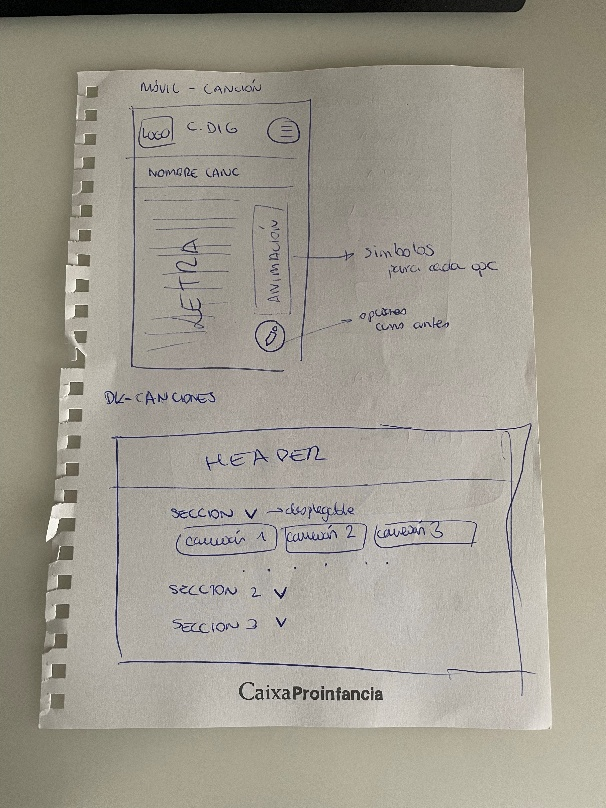 MÓVIL - CANCIÓN
LOGO C.DIG
NOMBRE CANC
LETRA
ANIMACIÓN
simbolos
para cada opc
opciones
antes
DK-CANCIONES
HEADER
SECCION V → desplegable
canción 1 canción 2 canción 3
SECCION 2 V
SECCION 3 V
CaixaProinfancia